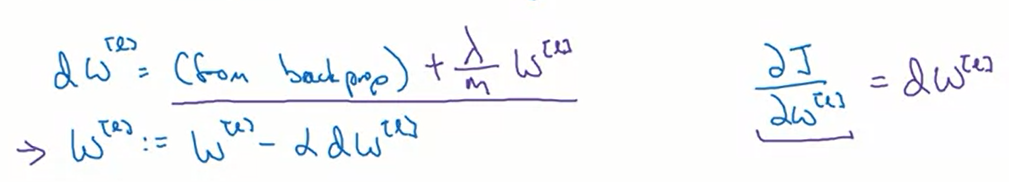 dW^[l] = (from backprop) + λ/m W^[l]
∂J/∂W^[l] = dW^[l]
→ W^[l] := W^[l] - αdW^[l]